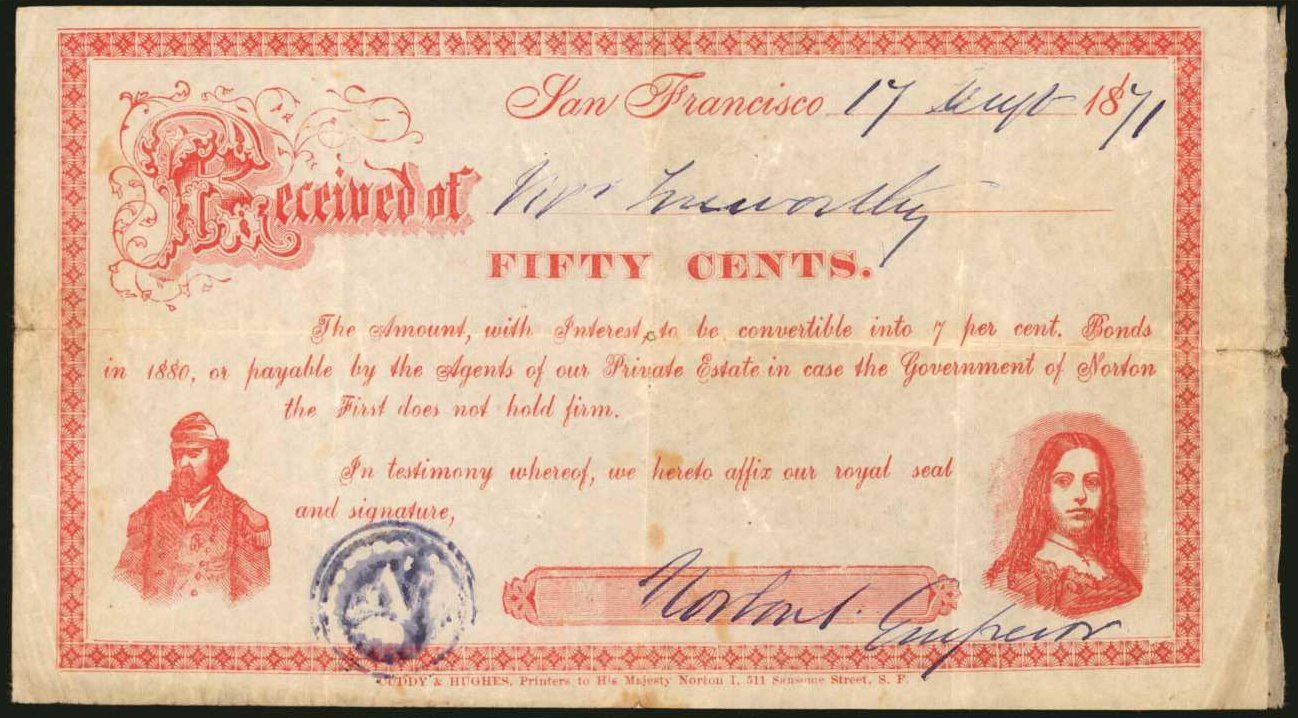 San Francisco 17 1871
Received of
FIFTY CENTS.
The Amount, with Interest, to be convertible into 7 per cent. Bonds
in 1880, or payable by the Agents of our Private Estate in case the Government of Norton
the First does not hold firm.
In testimony whereof, we hereto affix our royal seal
and signature,
Norton I.
Emperor
CUDDY & HUGHES, Printers to His Majesty Norton I, 511 Sansome Street, S. F.